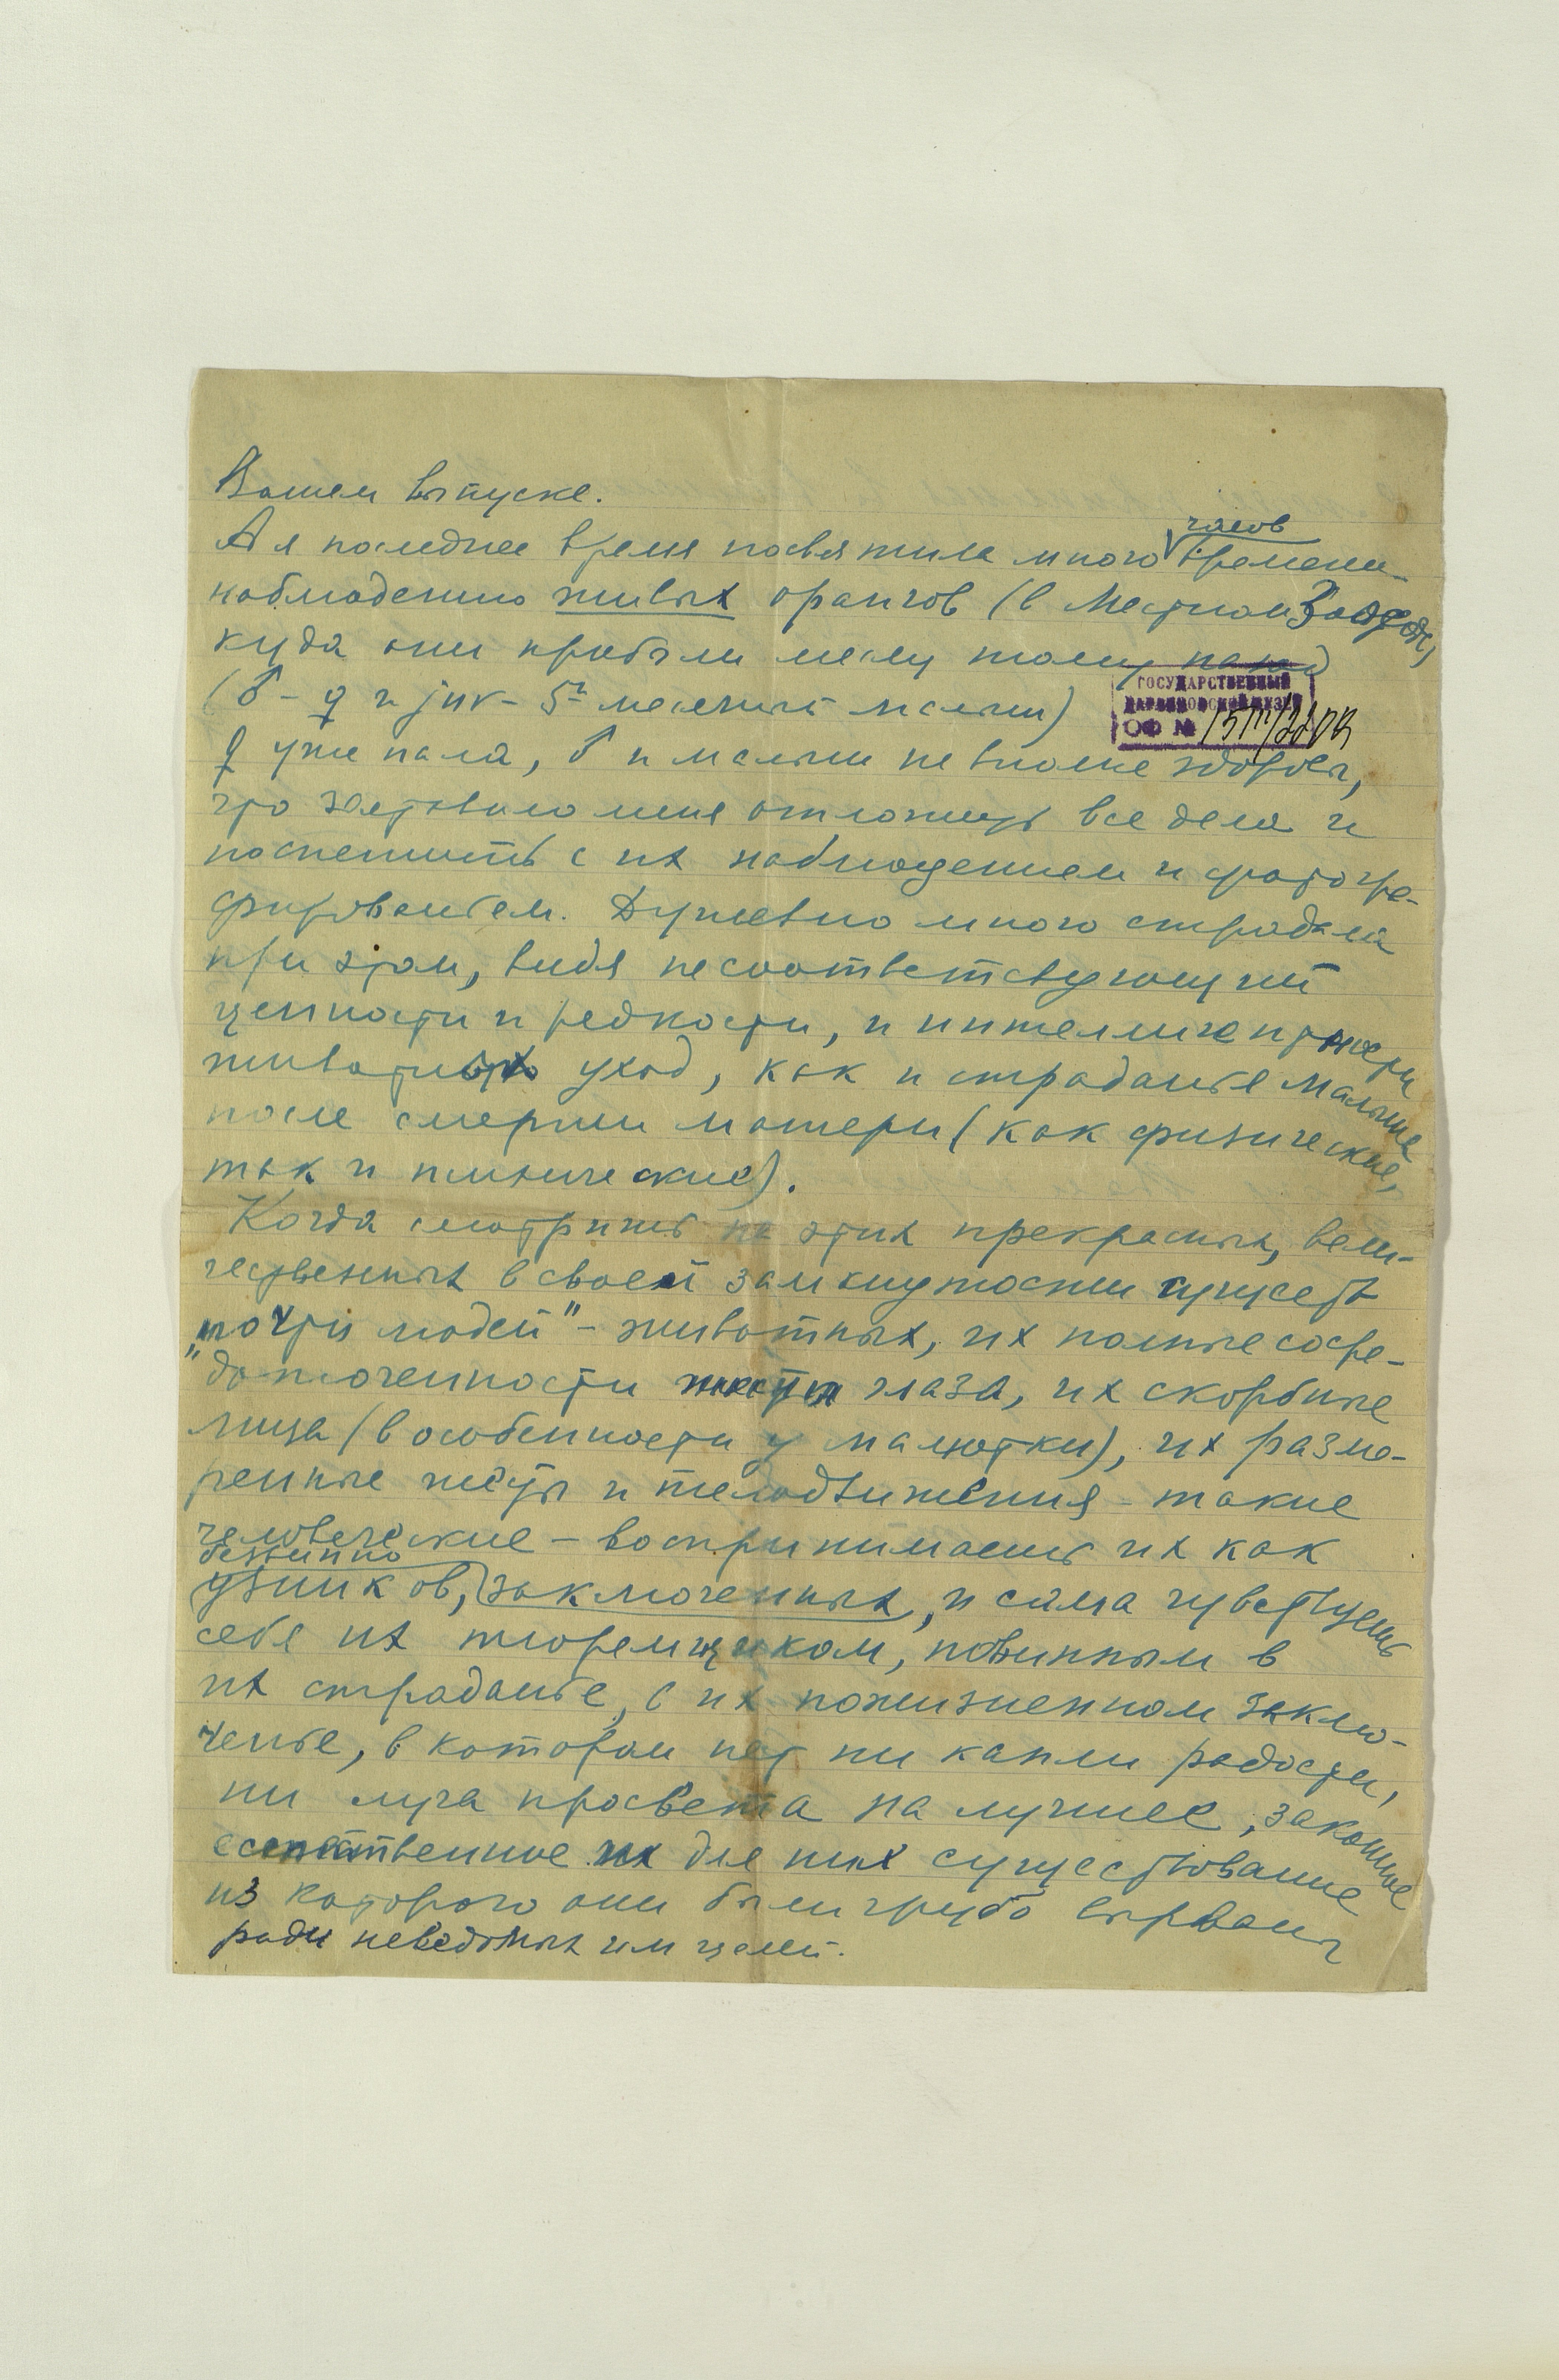 Вашем выпуске.
А я последнее время посвятила много часов времени
наблюдению живых орангов (в местном Зоосаде,
куда они прибыли месяц тому назад
(♂ - ♀ и juv - 5и месячный малыш)
ГОСУДАРСТВЕННЫЙ
ДАРВИНОВСКИЙ МУЗЕЙ
ОФ №
♀ уже пала, ♂ и малыш не вполне здоровы,
что заставило меня отложить все дела и
поспешить с их наблюдением и фотогра-
фированьем. Душевно много страдала
при этом, видя несоответствующий
ценности и редкости, и интеллигентности
животных уход, как и страданье малыша
после смерти матери (как физические,
так и психические).
Когда смотришь на этих прекрасных, вели-
чественных в своей замкнутости существ
"почти людей" - животных, их полные сосре-
доточенности глаза, их скорбные
лица (в особенности у малютки), их разме-
ренные жесты и телодвижения - такие
человеческие - воспринимаешь их как
безвинно
узников, заключенных, и сама чувствуешь
себя их тюремщиком, повинным в
их страданье, в их пожизненном заклю-
ченье, в котором нет ни капли радости,
ни луча просвета на лучшее, законное
естественное их для них существование
из которого они были грубо вырваны
ради неведомых им целей.